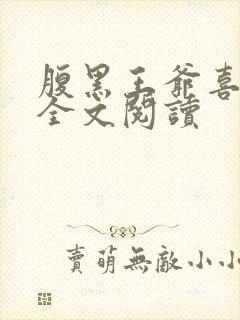 腹黑王爺喜
全文閱讀
賣萌無敵小小